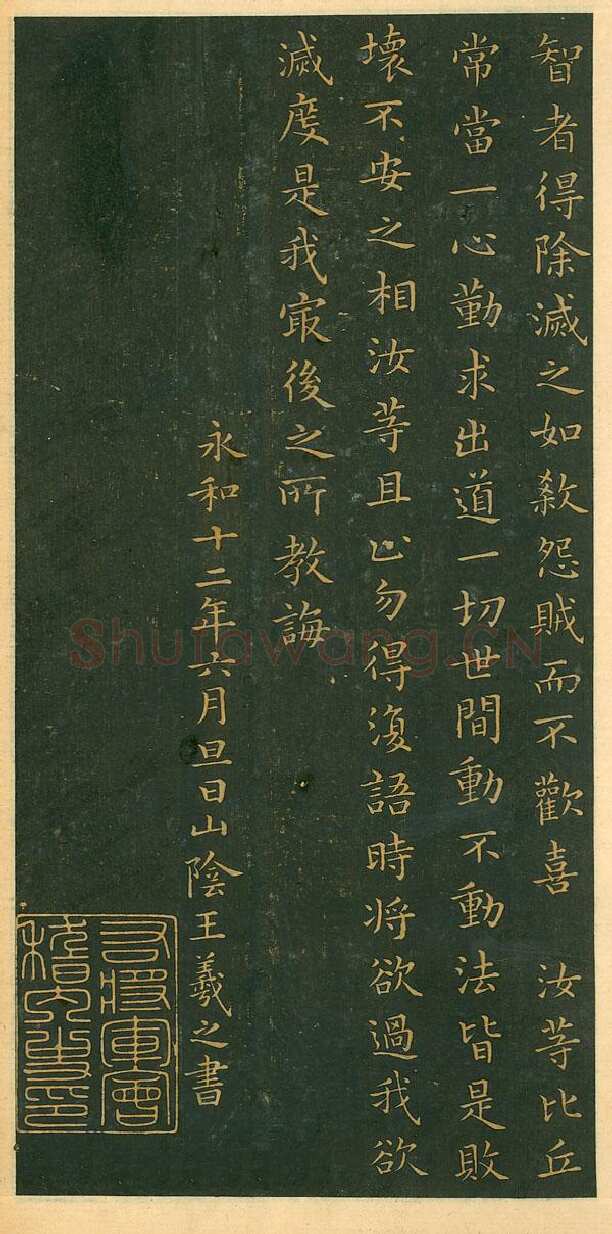 智者得除滅之如敘怨賊而不歡喜 汝等比丘
常當一心勤求出道一切世間動不動法皆是敗
壞不安之相汝等且止勿得復語時将欲過我欲
滅度是我㝡後之所教誨
永和十二年六月旦日山陰王羲之書
右将軍會
稽内史印
Shufawang.CN